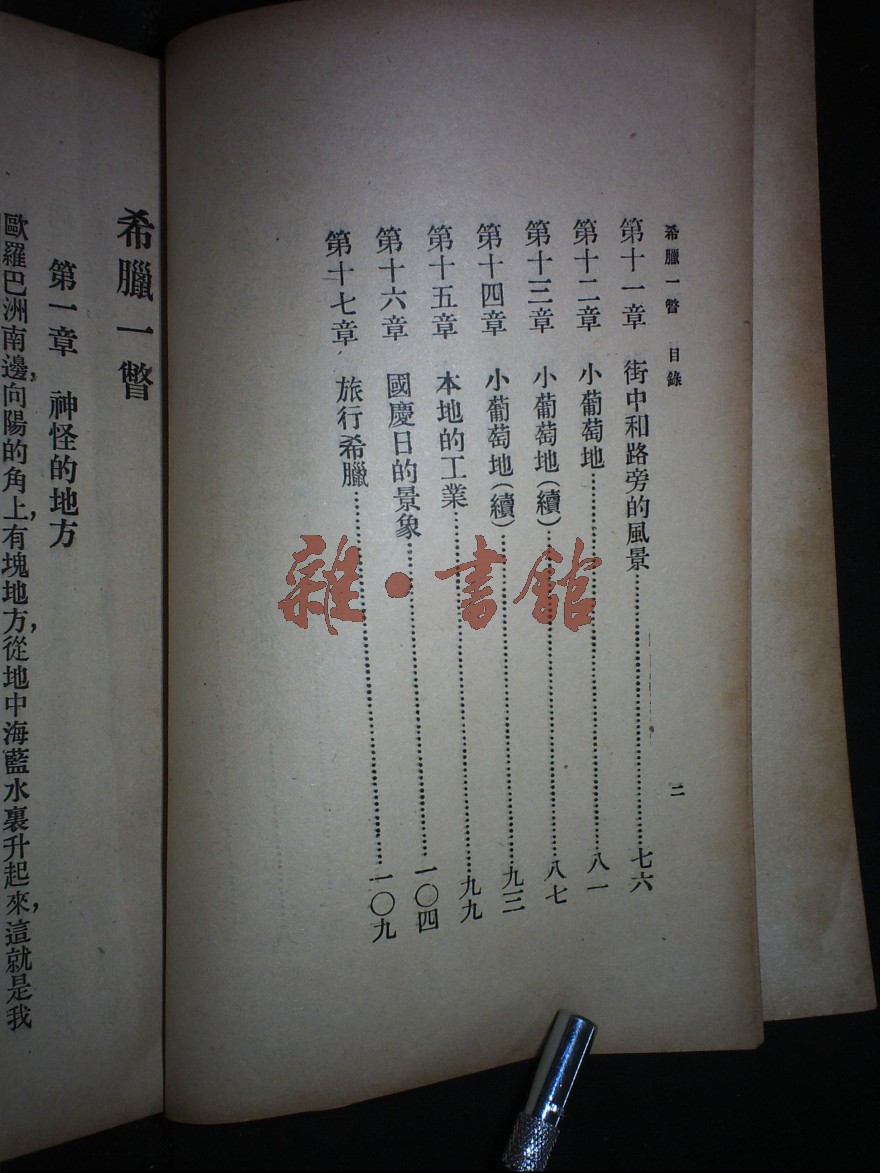 希臘一瞥 目錄 二
第十一章 街中和路旁的風景……七六
第十二章 小葡萄地……八一
第十三章 小葡萄地(續)……八七
第十四章 小葡萄地(續)……九三
第十五章 本地的工業……九九
第十六章 國慶日的景象……一〇四
第十七章 旅行希臘……一〇九
希臘一瞥
第一章 神怪的地方
歐羅巴洲南邊,向陽的角上,有塊地方,從地中海藍水裏升起來,這就是我
雜·書館